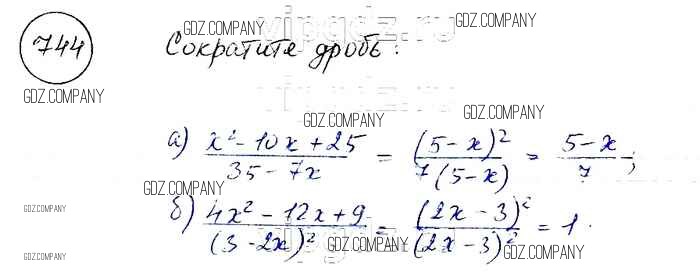 744
Сократите дробь:
GDZ.COMPANY
vipgdz.ru
GDZ.COMPANY
GDZ.COMPANY
GDZ.COMPANY
GDZ.COMPANY
а) (x² - 10x + 25)/(35 - 7x) = (5 - x)²/(7(5 - x)) = (5 - x)/7;
GDZ.COMPANY
б) (4x² - 12x + 9)/(3 - 2x)² = (2x - 3)²/(2x - 3)² = 1.
GDZ.COMPANY
GDZ.COMPANY
GDZ.COMPANY
GDZ.COMPANY
GDZ.COMPANY